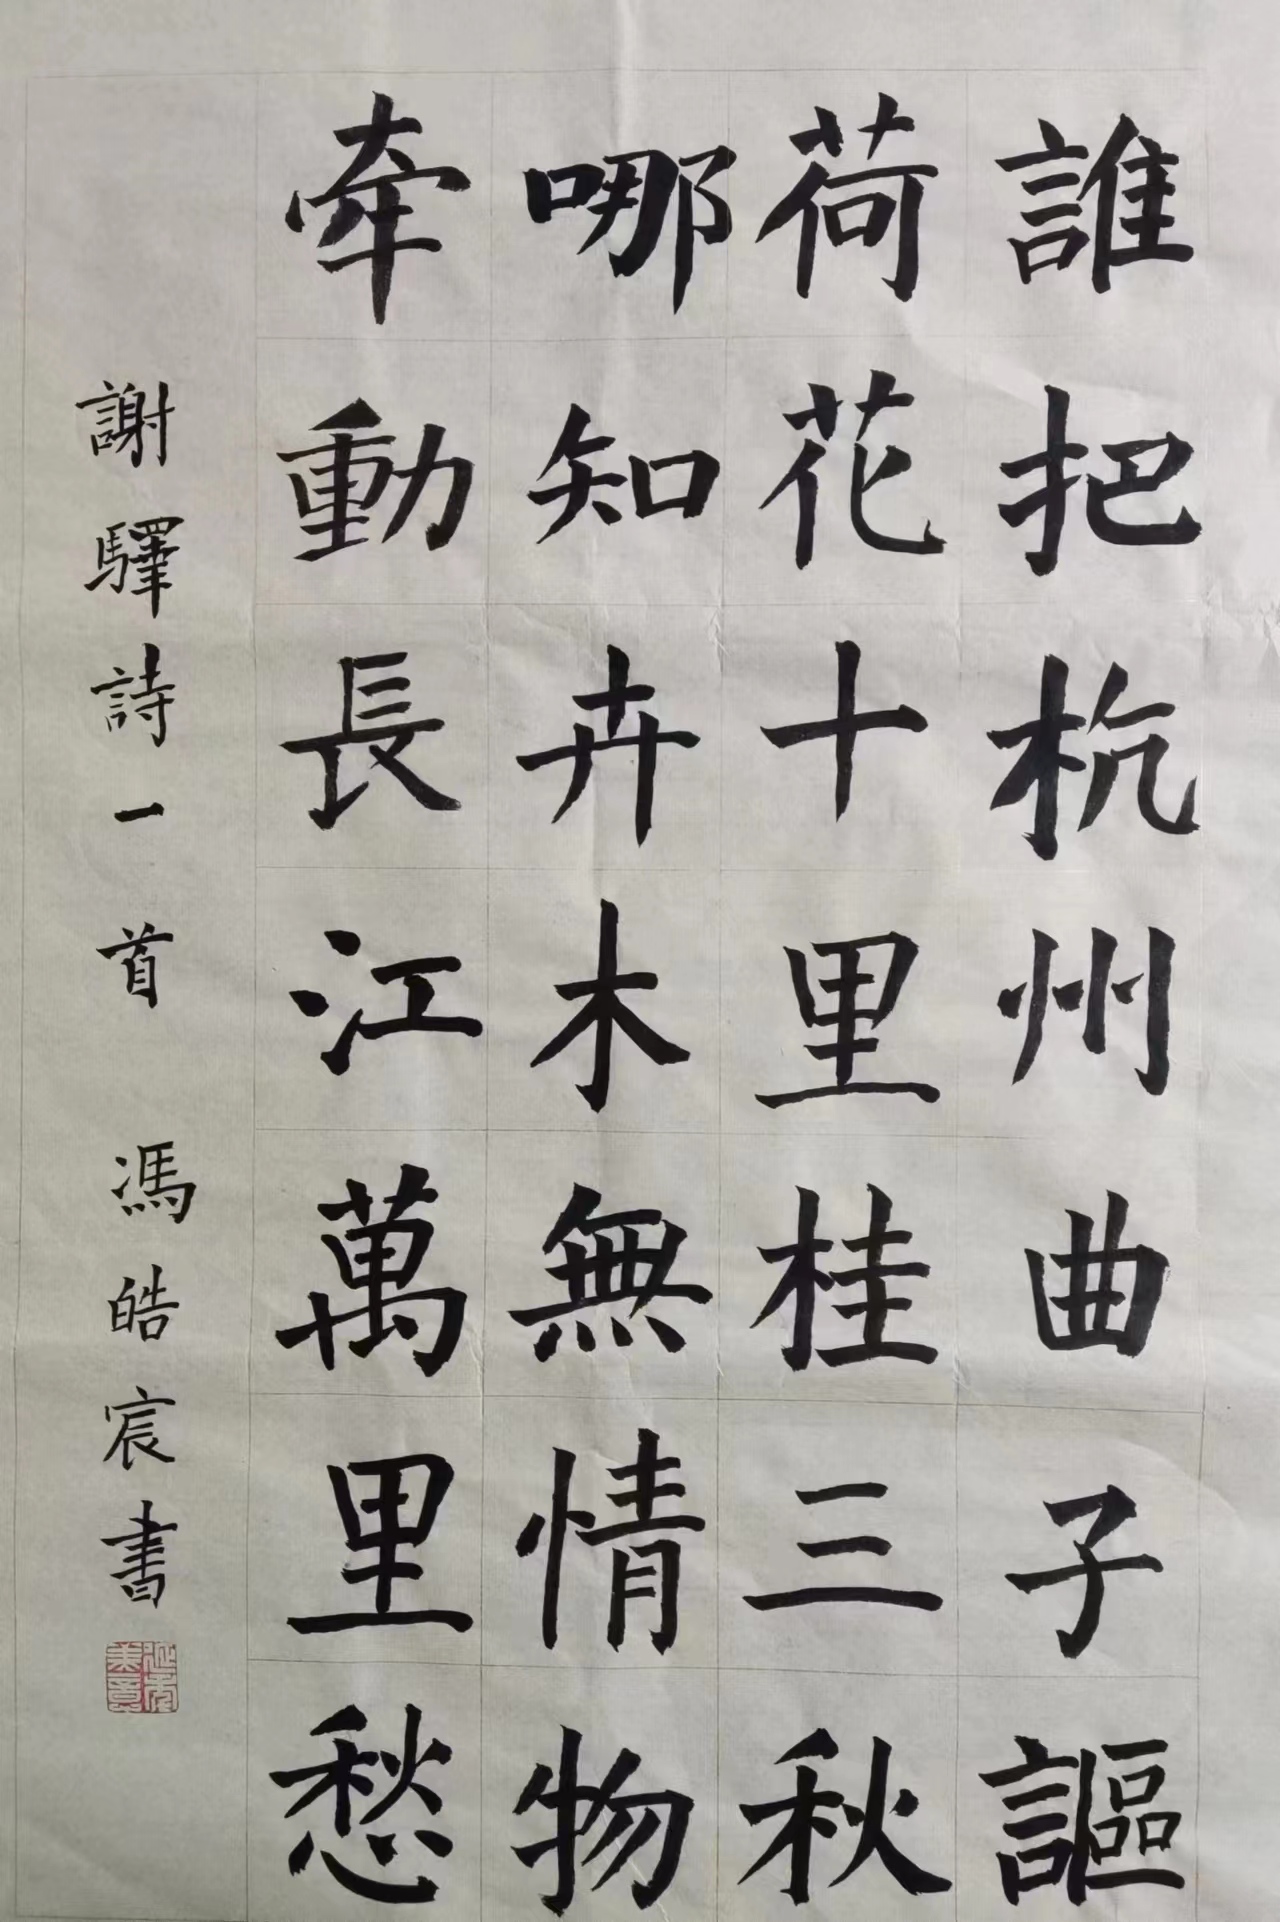 誰把杭州曲子謳
荷花十里桂三秋
哪知卉木無情物
牽動長江萬里愁
謝驛詩一首 馮皓宸書